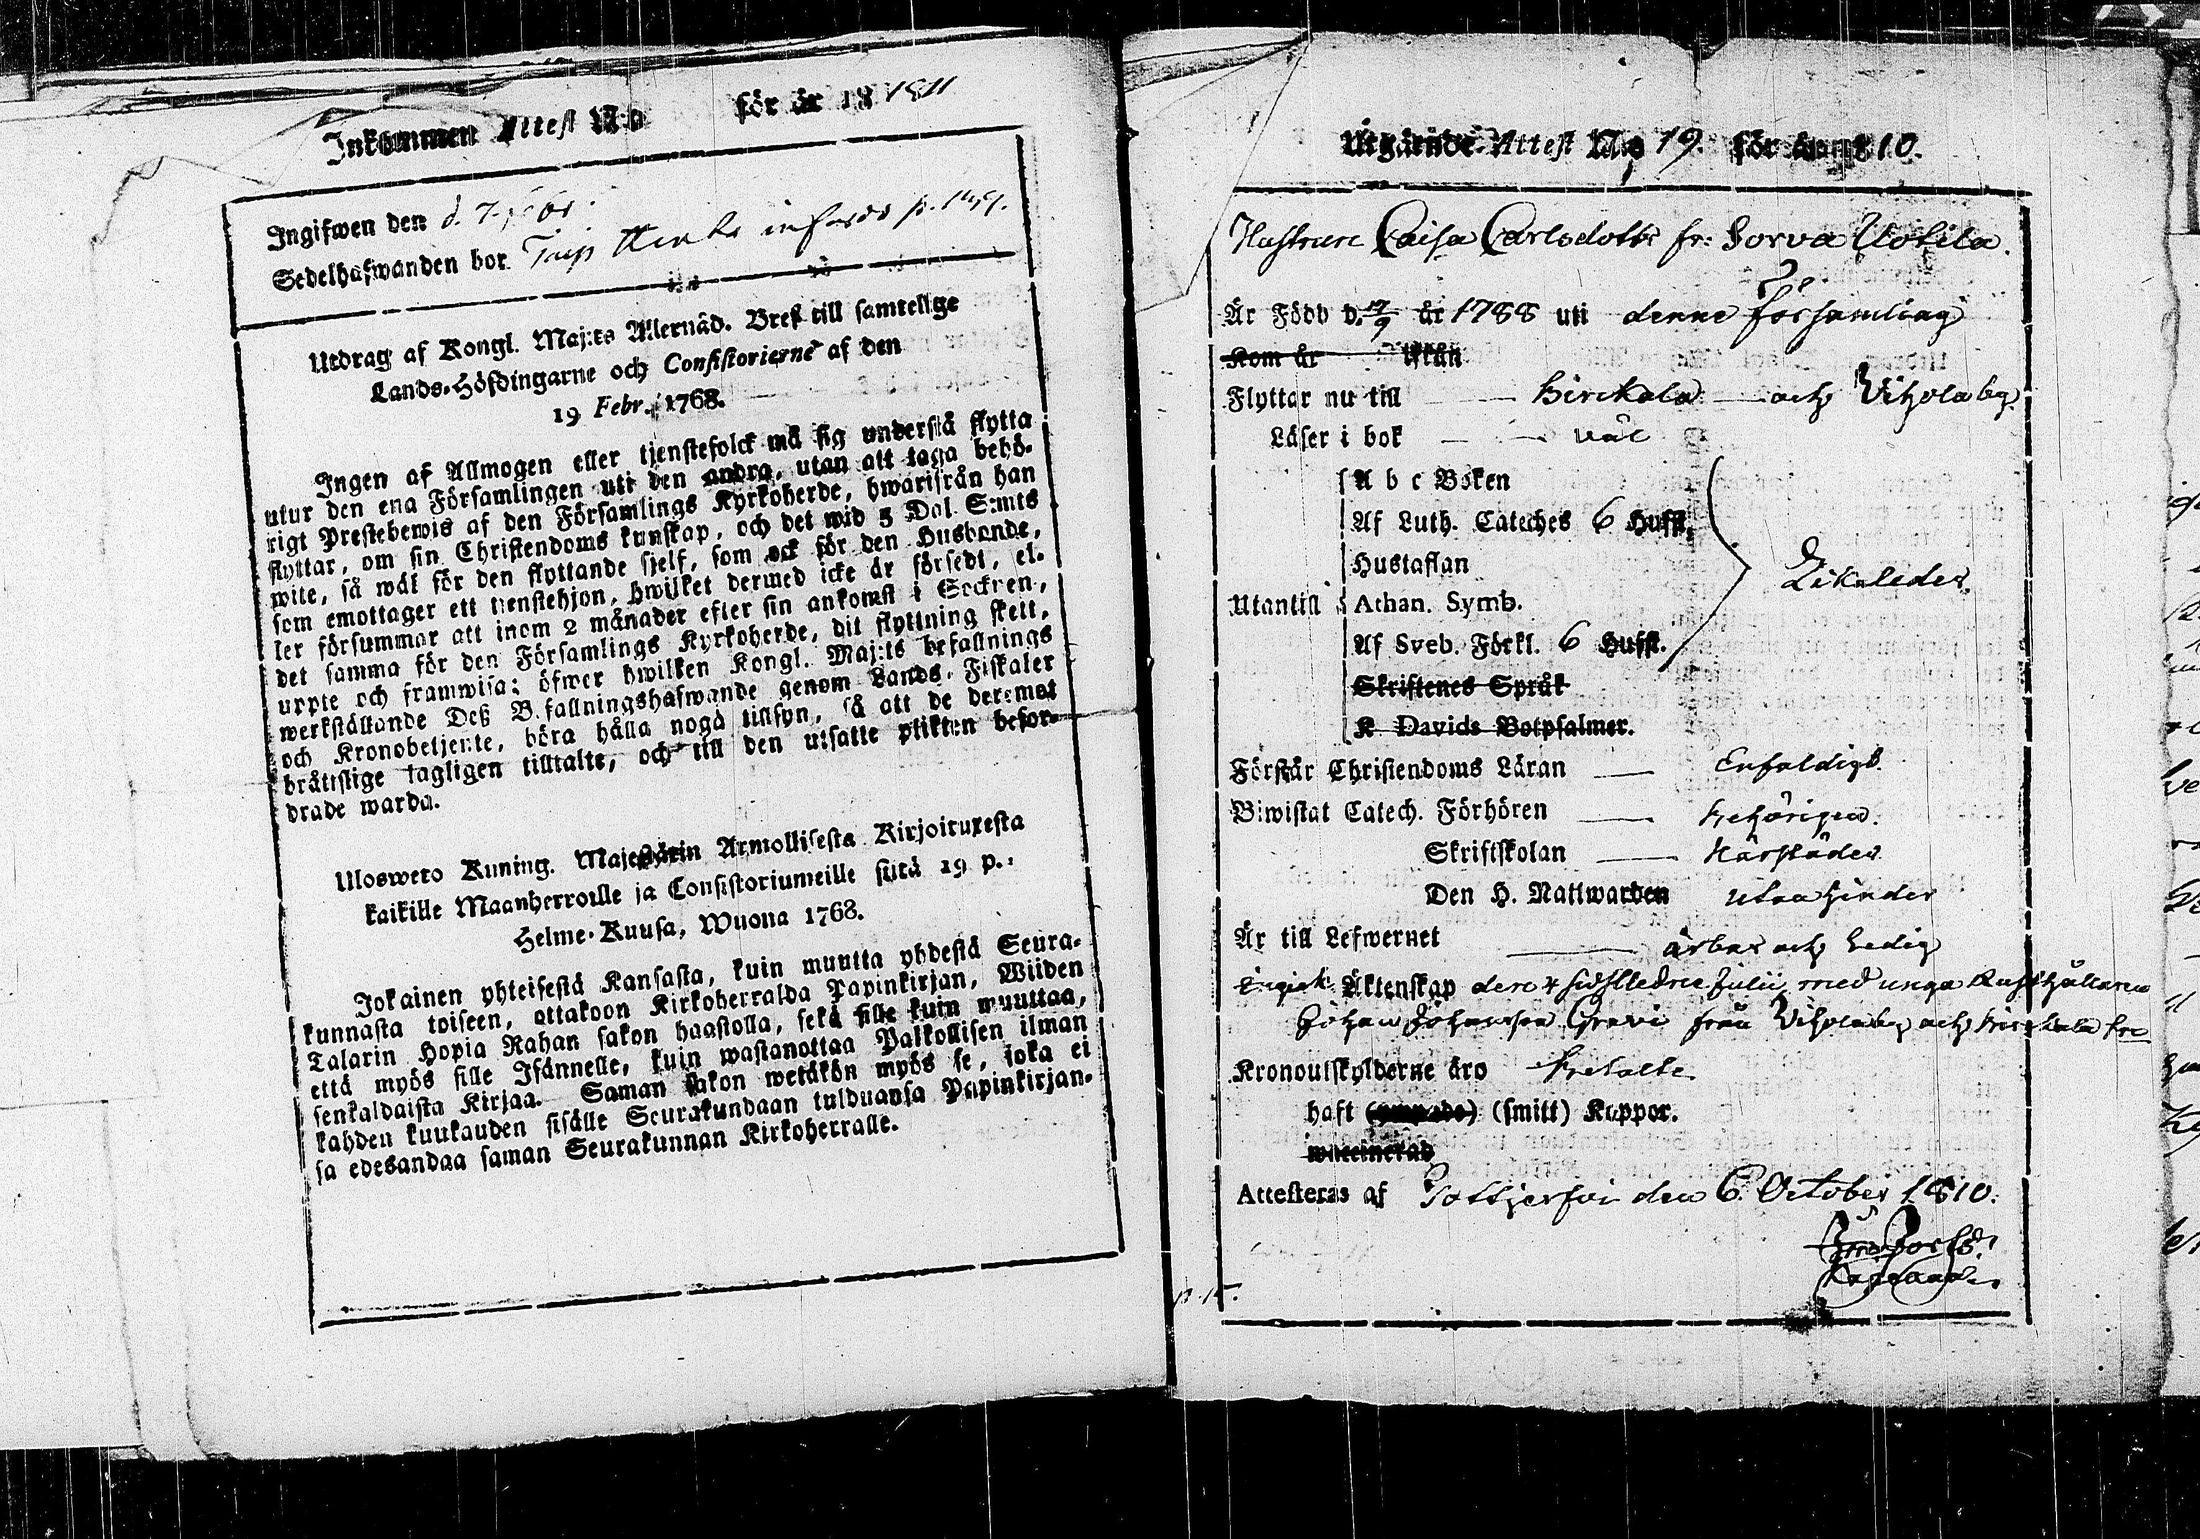 Inkommen Attest N:o för år 18 1811
Ingifwen den d. 7
Sedelhafwanden bor införd p.
Utdrag af Kongl. Maj:ts Allernåd. Bref till samtelige
Lands-Höfdingarne och Consistorierne af den
19 Febr. 1768.
Ingen af Allmogen eller tjenstefolck må sig understå flytta
utur den ena Församlingen uti den andra, utan att taga behö-
rigt Prestebewis af den Församlings Kyrkoherde, hwarifrån han
flyttar, om sin Christendoms kunskap, och det wid 5 Dal. S:mts
wite, så wäl för den flyttande sjelf, som ock för den Husbonde,
som emottager ett tienstehjon, hwilket dermed icke är försedt, el-
ler försummar att inom 2 månader efter sin ankomst i Socknen,
det samma för den Församlings Kyrkoherde, dit flyttning skett,
uppte och framwisa; öfwer hwilken Kongl. Maj:ts befallnings
werkställande Deß B.fallningshafwande genom Lands-Fiskaler
och Kronobetjente, böra hålla noga tillsyn, så att de deremot
bråttslige lagligen tilltalte, och till den utsatte plikten befor-
drade warda.
Uloswero Kuning. Majestätin Armollisesta Kirjoituxesta
kaikille Maanherroille ja Consistoriumeille siitä 19 p.:
Helme-Kuusa, Wuona 1768.
Jokainen yhteisestä Kansasta, kuin muutta yhdestä Seura-
kunnasta toiseen, ottakoon Kirkoherralda Papinkirjan, Wiiden
Talarin Hopia Rahan sakon haastolla, sekä sille kuin muuttaa,
että myös sille Isännelle, kuin wastanottaa Palkollisen ilman
senkaldaista Kirjaa. Saman sakon wetäkön myös se, joka ei
kahden kuukauden sisälle Seurakundaan tulduansa Papinkirjan-
sa edesandaa saman Seurakunnan Kirkoherralle.
Utgående Attest No 19. för år 1810.
Hustrun Caisa Carlsdotter fr: Sorva Uotila.
Är Född d. 17/9 år 1788 uti denne Församling
Kom år ifrån
Flyttar nu till Birckala och Vihola by
Läser i bok väl
A b c Boken
Af Luth. Cateches 6 Hufst.
Hustaflan
Utantill Athan. Symb. Likaledes
Af Sveb. Förkl. 6 Hufst.
Skriftenes Språk
K Davids Botpsalmer.
Förstår Christendoms Läran Enfaldigt
Biwistat Catech. Förhören behörigen.
Skriftskolan Härstädes
Den H. Nattwarden utan hinder
Är till Lefwernet ärbar och ledig
Ingick Äktenskap den 4 sidstledne Julii med unga Rusthållaren
Johan Johansson Grevi från Vihola by och Birckala
Kronoutskylderne äro betalte
haft (ympade) (smitt) Koppor.
waccinerad
Attesteras af Pottjerfvi den 6 October 1810.